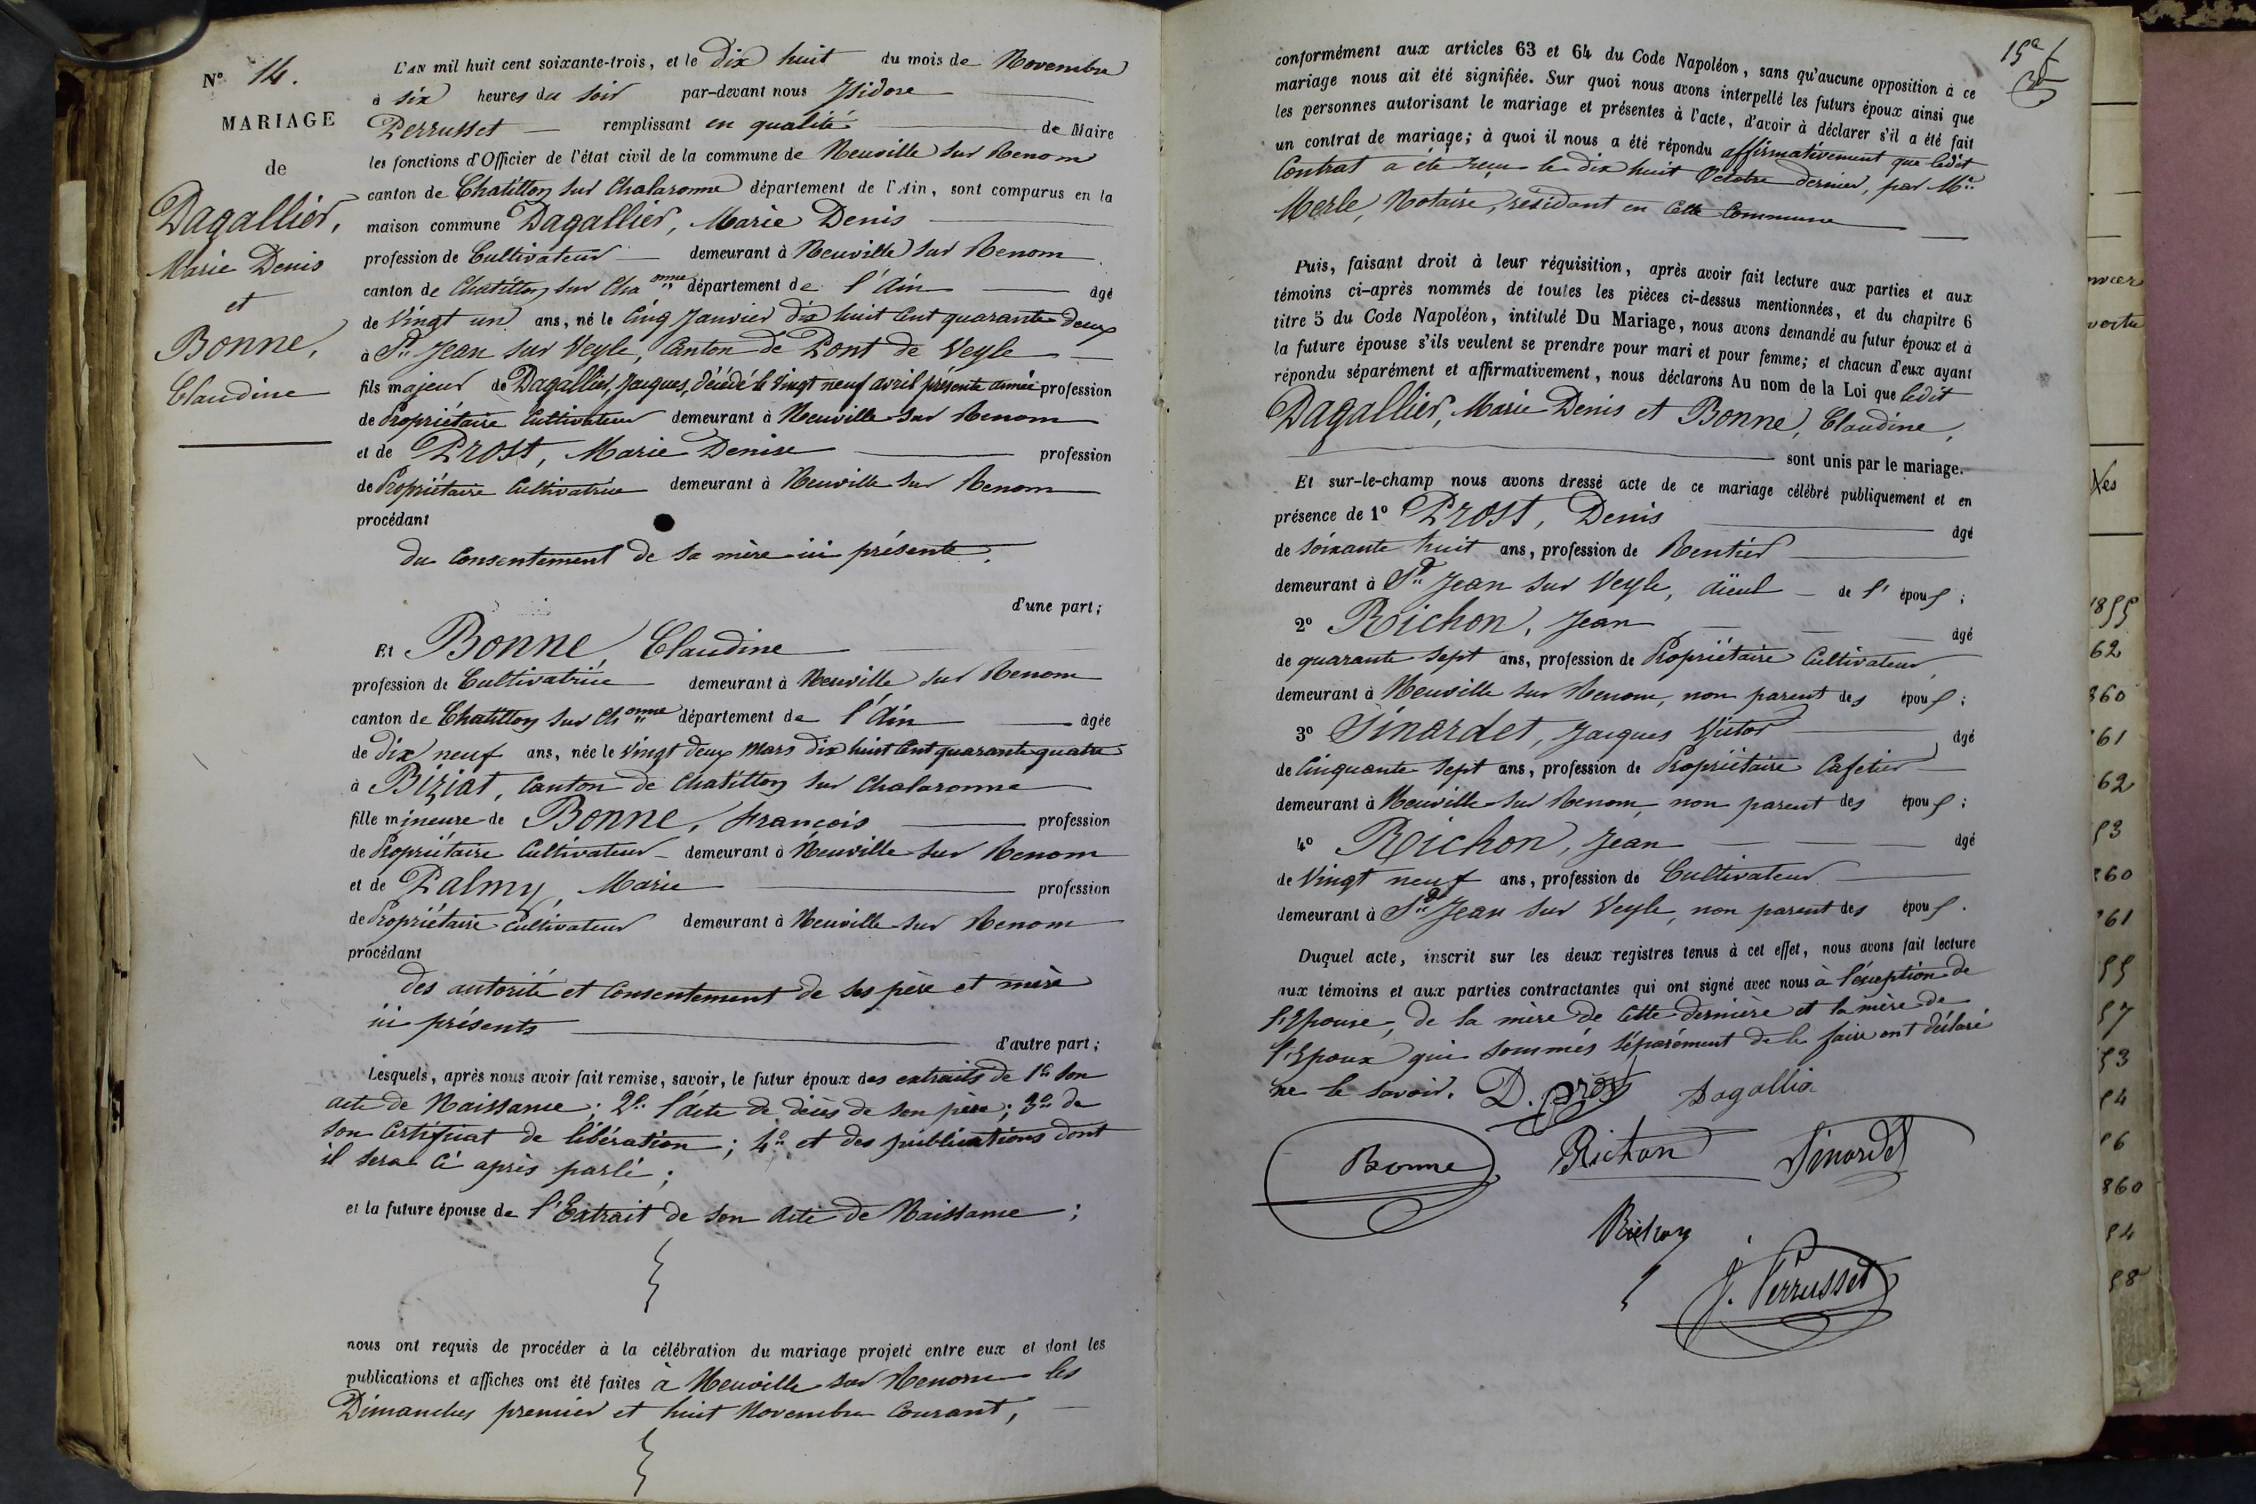 N° 14.
MARIAGE
de
Dagallier,
Marie Denis
et
Bonne,
Claudine
L'AN mil huit cent soixante-trois, et le dix huit du mois de Novembre
à six heures du soir par-devant nous Isidore
Perrusset remplissant en qualité de Maire
les fonctions d'Officier de l'état civil de la commune de Neuville sur Renom
canton de Chatillon sur Chalaronne département de l'Ain, sont comparus en la
maison commune Dagallier, Marie Denis
profession de Cultivateur demeurant à Neuville sur Renom
canton de Chatillon sur Chaonne département de l'Ain âgé
de Vingt un ans, né le Cinq Janvier dix huit Cent quarante deux
à St Jean sur Veyle, Canton de Pont de Veyle
fils majeur de Dagallier, Jacques, décédé le Vingt neuf avril présente année profession
de Propriétaire Cultivateur demeurant à Neuville sur Renom
et de Prost, Marie Denise profession
de Propriétaire Cultivatrice demeurant à Neuville sur Renom
procédant
du Consentement de sa mère ici présente.
d'une part;
Et Bonne, Claudine
profession de Cultivatrice demeurant à Neuville sur Renom
canton de Chatillon sur Chonne département de l'Ain âgée
de dix neuf ans, née le Vingt deux Mars dix huit Cent quarante quatre
à Biziat, Canton de Chatillon sur Chalaronne
fille mineure de Bonne, François profession
de Propriétaire Cultivateur demeurant à Neuville sur Renom
et de Palmy, Marie profession
de Propriétaire Cultivateur demeurant à Neuville sur Renom
procédant
des autorité et Consentement de ses père et mère
ici présents
d'autre part;
Lesquels, après nous avoir fait remise, savoir, le futur époux des extraits de 1° son
acte de Naissance; 2° l'acte de décès de son père; 3° de
son Certificat de libération; 4° et des publications dont
il sera Ci après parlé;
et la future épouse de l'Extrait de son acte de Naissance;
nous ont requis de procéder à la célébration du mariage projeté entre eux et dont les
publications et affiches ont été faites à Neuville sur Renom les
Dimanches premier et huit Novembre Courant,
15e f
conformément aux articles 63 et 64 du Code Napoléon, sans qu'aucune opposition à ce
mariage nous ait été signifiée. Sur quoi nous avons interpellé les futurs époux ainsi que
les personnes autorisant le mariage et présentes à l'acte, d'avoir à déclarer s'il a été fait
un contrat de mariage; à quoi il nous a été répondu affirmativement que ledit
Contrat a été reçu le dix huit Octobre dernier, par Me
Merle, Notaire, résidant en Cette Commune
Puis, faisant droit à leur réquisition, après avoir fait lecture aux parties et aux
témoins ci-après nommés de toutes les pièces ci-dessus mentionnées, et du chapitre 6
titre 5 du Code Napoléon, intitulé Du Mariage, nous avons demandé au futur époux et à
la future épouse s'ils veulent se prendre pour mari et pour femme; et chacun d'eux ayant
répondu séparément et affirmativement, nous déclarons Au nom de la Loi que ledit
Dagallier, Marie Denis et Bonne, Claudine,
sont unis par le mariage.
Et sur-le-champ nous avons dressé acte de ce mariage célébré publiquement et en
présence de 1° Prost, Denis âgé
de soixante huit ans, profession de Rentier
demeurant à St Jean sur Veyle, aïeul de l' époux;
2° Richon, Jean âgé
de quarante sept ans, profession de Propriétaire Cultivateur
demeurant à Neuville sur Renom, non parent des époux;
3° Sinardet, Jacques Victor âgé
de Cinquante sept ans, profession de Propriétaire Cafetier
demeurant à Neuville sur Renom, non parent des époux;
4° Richon, Jean âgé
de Vingt neuf ans, profession de Cultivateur
demeurant à St Jean sur Veyle, non parent des époux.
Duquel acte, inscrit sur les deux registres tenus à cet effet, nous avons fait lecture
aux témoins et aux parties contractantes qui ont signé avec nous à l'éxception de
l'Epouse, de la mère de Cette dernière et la mère de
l'Epoux qui sommés séparément de le faire ont déclaré
ne le savoir. D. Prost Dagallier
Bonne Richon Sinardet
Richon
J. Perrusset
1855
62
860
61
62
53
860
61
55
57
53
54
56
860
54
58